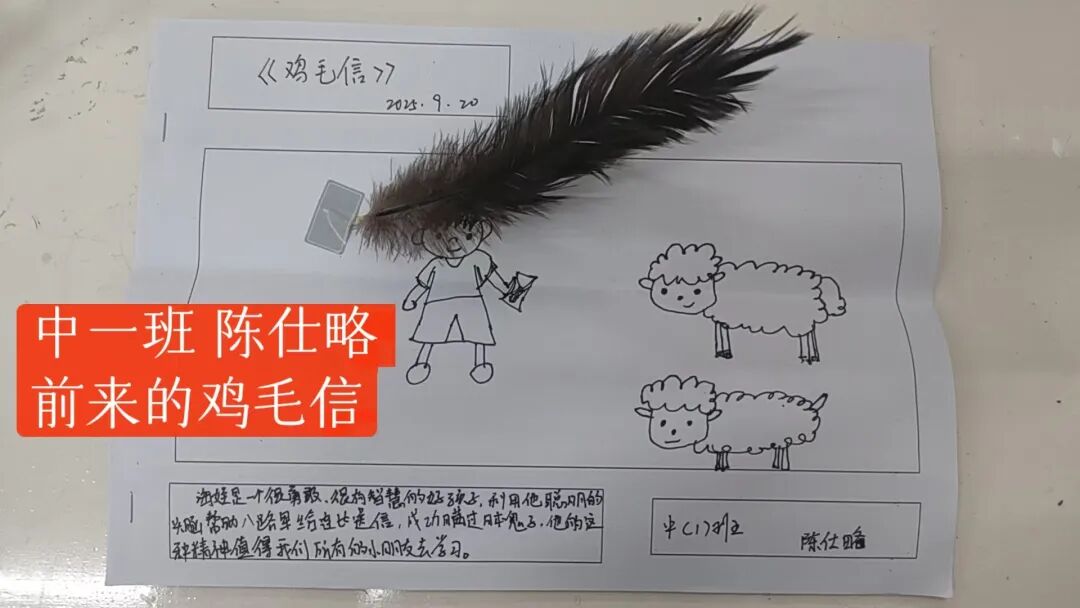 《鸡毛信》
2025.9.20
中一班 陈仕略
前来的鸡毛信
海娃是一个很勇敢、很有智慧的好孩子,利用他聪明的
头脑,帮助八路军给连长送信,成功瞒过日本鬼子,他的这
种精神值得我们所有的小朋友去学习。
中(1)班
陈仕略